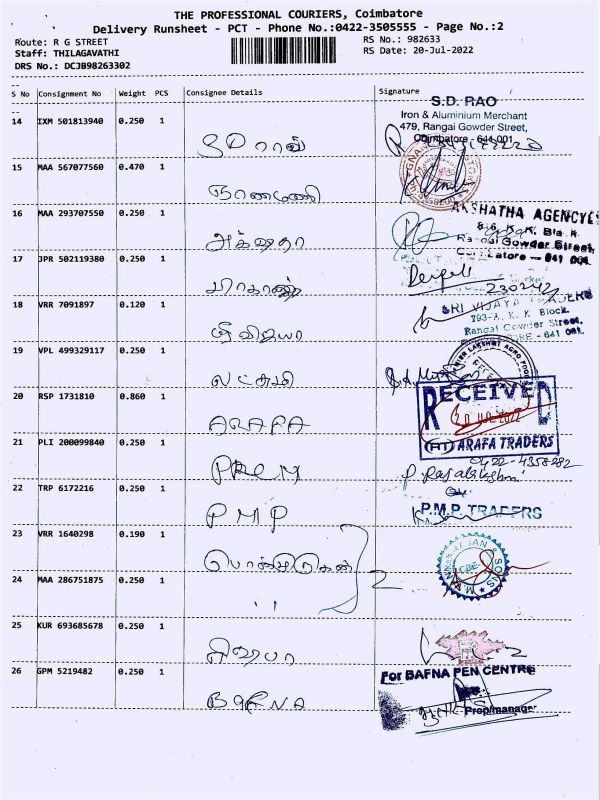 THE PROFESSIONAL COURIERS, Coimbatore
Delivery Runsheet - PCT - Phone No.:0422-3505555 - Page No.:2
Route: R G STREET
RS No.: 982633
Staff: THILAGAVATHI
RS Date: 20-Jul-2022
DRS No.: DCJB98263302
S No Consignment No Weight PCS Consignee Details Signature
14 IXM 501813940 0.250 1
S.D. RAO
Iron & Aluminium Merchant
479, Rangai Gowder Street,
Coimbatore - 641 001
SD ராவ்
15 MAA 567077560 0.470 1
ஞானமணி
16 MAA 293707550 0.250 1
AKSHATHA AGENCYES
Rangai Gowder Street,
Coimbatore - 641 001.
அக்ஷதா
17 JPR 502119380 0.250 1
18 VRR 7091897 0.120 1
SRI VIJAYA TRADERS
793-A, K. K. Block
Rangai Gowder Street,
COIMBATORE - 641 001.
ஸ்ரீ விஜயா
19 VPL 499329117 0.250 1
லட்சுமி
20 RSP 1731810 0.860 1
RECEIVED
20 JUL 2022
(AT) ARAFA TRADERS
ARAFA
21 PLI 200099840 0.250 1
0422-4358282
P. Rajalakshmi
PREM
22 TRP 6172216 0.250 1
P.M.P. TRADERS
PMP
23 VRR 1640298 0.190 1
24 MAA 286751875 0.250 1
2
25 KUR 693685678 0.250 1
26 GPM 5219482 0.250 1
For BAFNA PEN CENTRE
Prop/manager
BAFNA